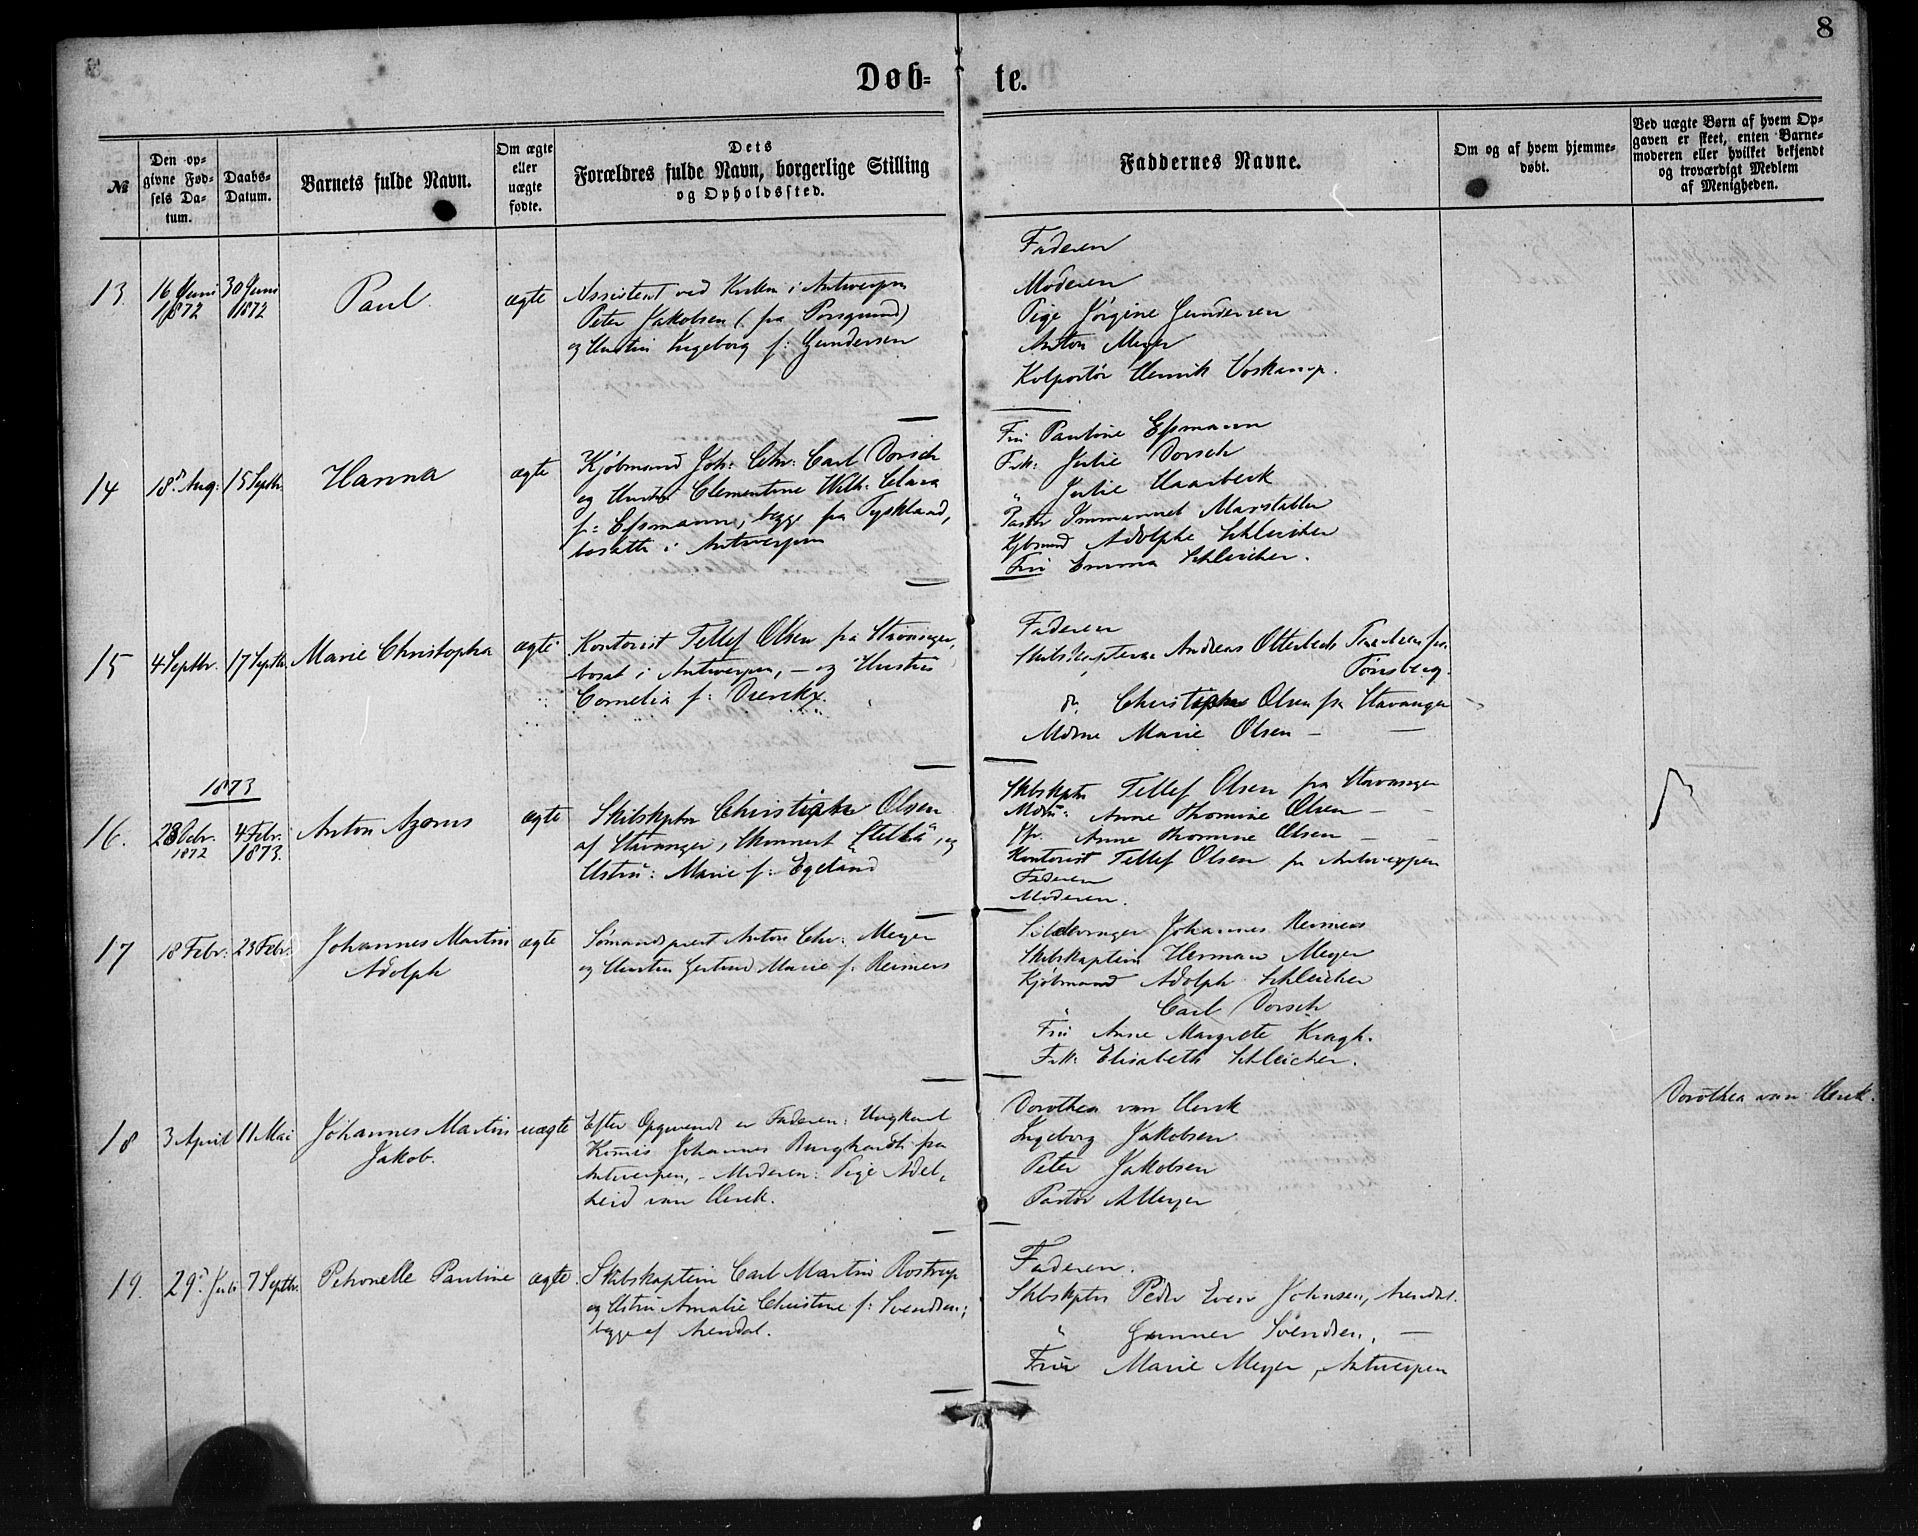 8
Døb- te.
№
Den opgivne Fødsels Datum.
Daabs-Datum.
Barnets fulde Navn.
Om ægte eller uægte fødte.
Dets Forældres fulde Navn, borgerlige Stilling og Opholdssted.
Faddernes Navne.
Om og af hvem hjemmedøbt.
Ved uægte Børn af hvem Opgaven er skeet, enten Barnemoderen eller hvilket bekjendt og troværdigt Medlem af Menigheden.
13.
16 Juni 1872
30 Juni 1872
Paul.
ægte
Assistent ved Kirken i Antwerpen
Peter Jakobsen (fra Porsgrund)
og Hustru Ingeborg f: Gundersen
Faderen
Moderen
Pige Jörgine Gundersen
Anton Meyer
Kolportör Henrik Voskamp.
14
18d Aug:
15 Septbr.
Hanna
ægte
Kjöbmand Joh: Chr: Carl Dorsch
og Hustru Clementine Wilh: Clara
f: Essmann, begge fra Tyskland,
bosatte i Antwerpen
Fru Pauline Essmann
Frk: Julie Dorsch
" Julie Haarbeck
Pastor Immanuel Marstaller
Kjöbmand Adolphe Schleicher
Fru Emma Schleicher.
15
4 Septbr.
17 Septbr.
Marie Christopha
ægte
Kontorist Tellef Olsen fra Stavanger,
bosat i Antwerpen, – og Hustru
Cornelia f: Dierckx.
Faderen
Skibskapteine Andreas Otterbech fra
Tønsberg.
do. Christopher Olsen fra Stavanger
Mdme Marie Olsen –
1873
16.
28 Debr. 1872
4 Febr. 1873.
Anton Azorus
ægte
Skibskptn Christopher Olsen
af Stavanger, Skonnert "Stella", og
Hstru: Marie f: Egeland
Skibskptn Tellef Olsen fra Stavanger
Mdm: Anne Thomine Olsen –
Jfr. Anne Thomine Olsen – –
Kontorist Tellef Olsen fra Antwerpen
Faderen
Moderen.
17
18 Febr:
23 Febr:
Johannes Martin
Adolph
ægte
Sömandsprest Anton Chr: Meyer
og Hustru Gertrud Marie f: Reimers
Johannes Reimers
Skibskaptein Herman Meyer
Kjöbmand Adolph Schleicher
" Carl Dorsch
Fru Anne Margrete Kragh.
Frk: Elisabeth Schleicher.
18
3 April
11 Mai
Johannes Martin
Jakob.
uægte
Efter Opgivende er Faderen: Ungkarl
Komis Johannes Burghardt fra
Antwerpen, – Moderen: Pige Adel-
heid van Herck.
Dorothea van Herck
Ingeborg Jakobsen
Peter Jakobsen
Pastor A Meyer
Dorothea van Herck.
19.
29d Juli
7 Septbr.
Petronelle Pauline
ægte.
Skibskaptein Carl Martin Rostrup
og Hstru Amalie Christine f: Svendsen;
begge af Arendal.
Faderen.
Skibskptn Peder Even Johnsen, Arendal.
" Gunner Svendsen, –
Frue Marie Meyer, Antwerpen